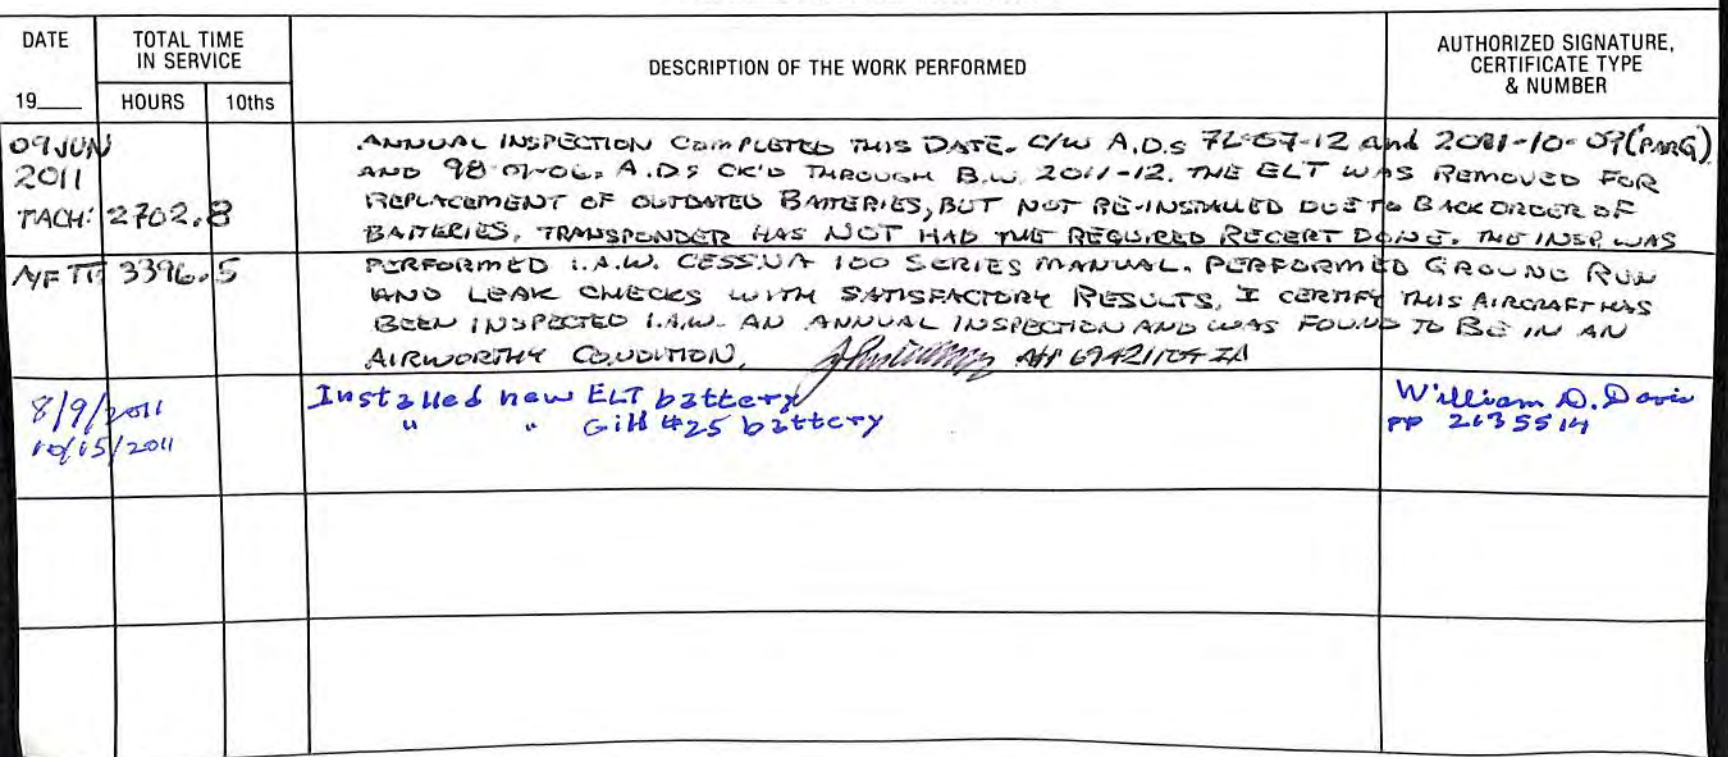 DATE
TOTAL TIME
IN SERVICE
DESCRIPTION OF THE WORK PERFORMED
AUTHORIZED SIGNATURE,
CERTIFICATE TYPE
& NUMBER
19____
HOURS
10ths
09 JUN
2011
TACH: 2702.8
ANNUAL INSPECTION COMPLETED THIS DATE. C/W A.D.s and
AND A.D.S CK'D THROUGH B.W. 2011-12. THE ELT WAS REMOVED FOR
REPLACEMENT OF OUTDATED BATTERIES, BUT NOT RE-INSTALLED DUE TO BACKORDER OF
BATTERIES. TRANSPONDER HAS NOT HAD THE REQUIRED RECERT DONE. THE INSP. WAS
A/F TT 3396.5
PERFORMED I.A.W. CESSNA 100 SERIES MANUAL. PERFORMED GROUND RUN
AND LEAK CHECKS WITH SATISFACTORY RESULTS. I CERTIFY THIS AIRCRAFT HAS
BEEN INSPECTED I.A.W. AN ANNUAL INSPECTION AND WAS FOUND TO BE IN AN
AIRWORTHY CONDITION.
8/9/2011
Installed new ELT battery
William D. Davis
10/15/2011
" " Gill #25 battery
PP 2635514